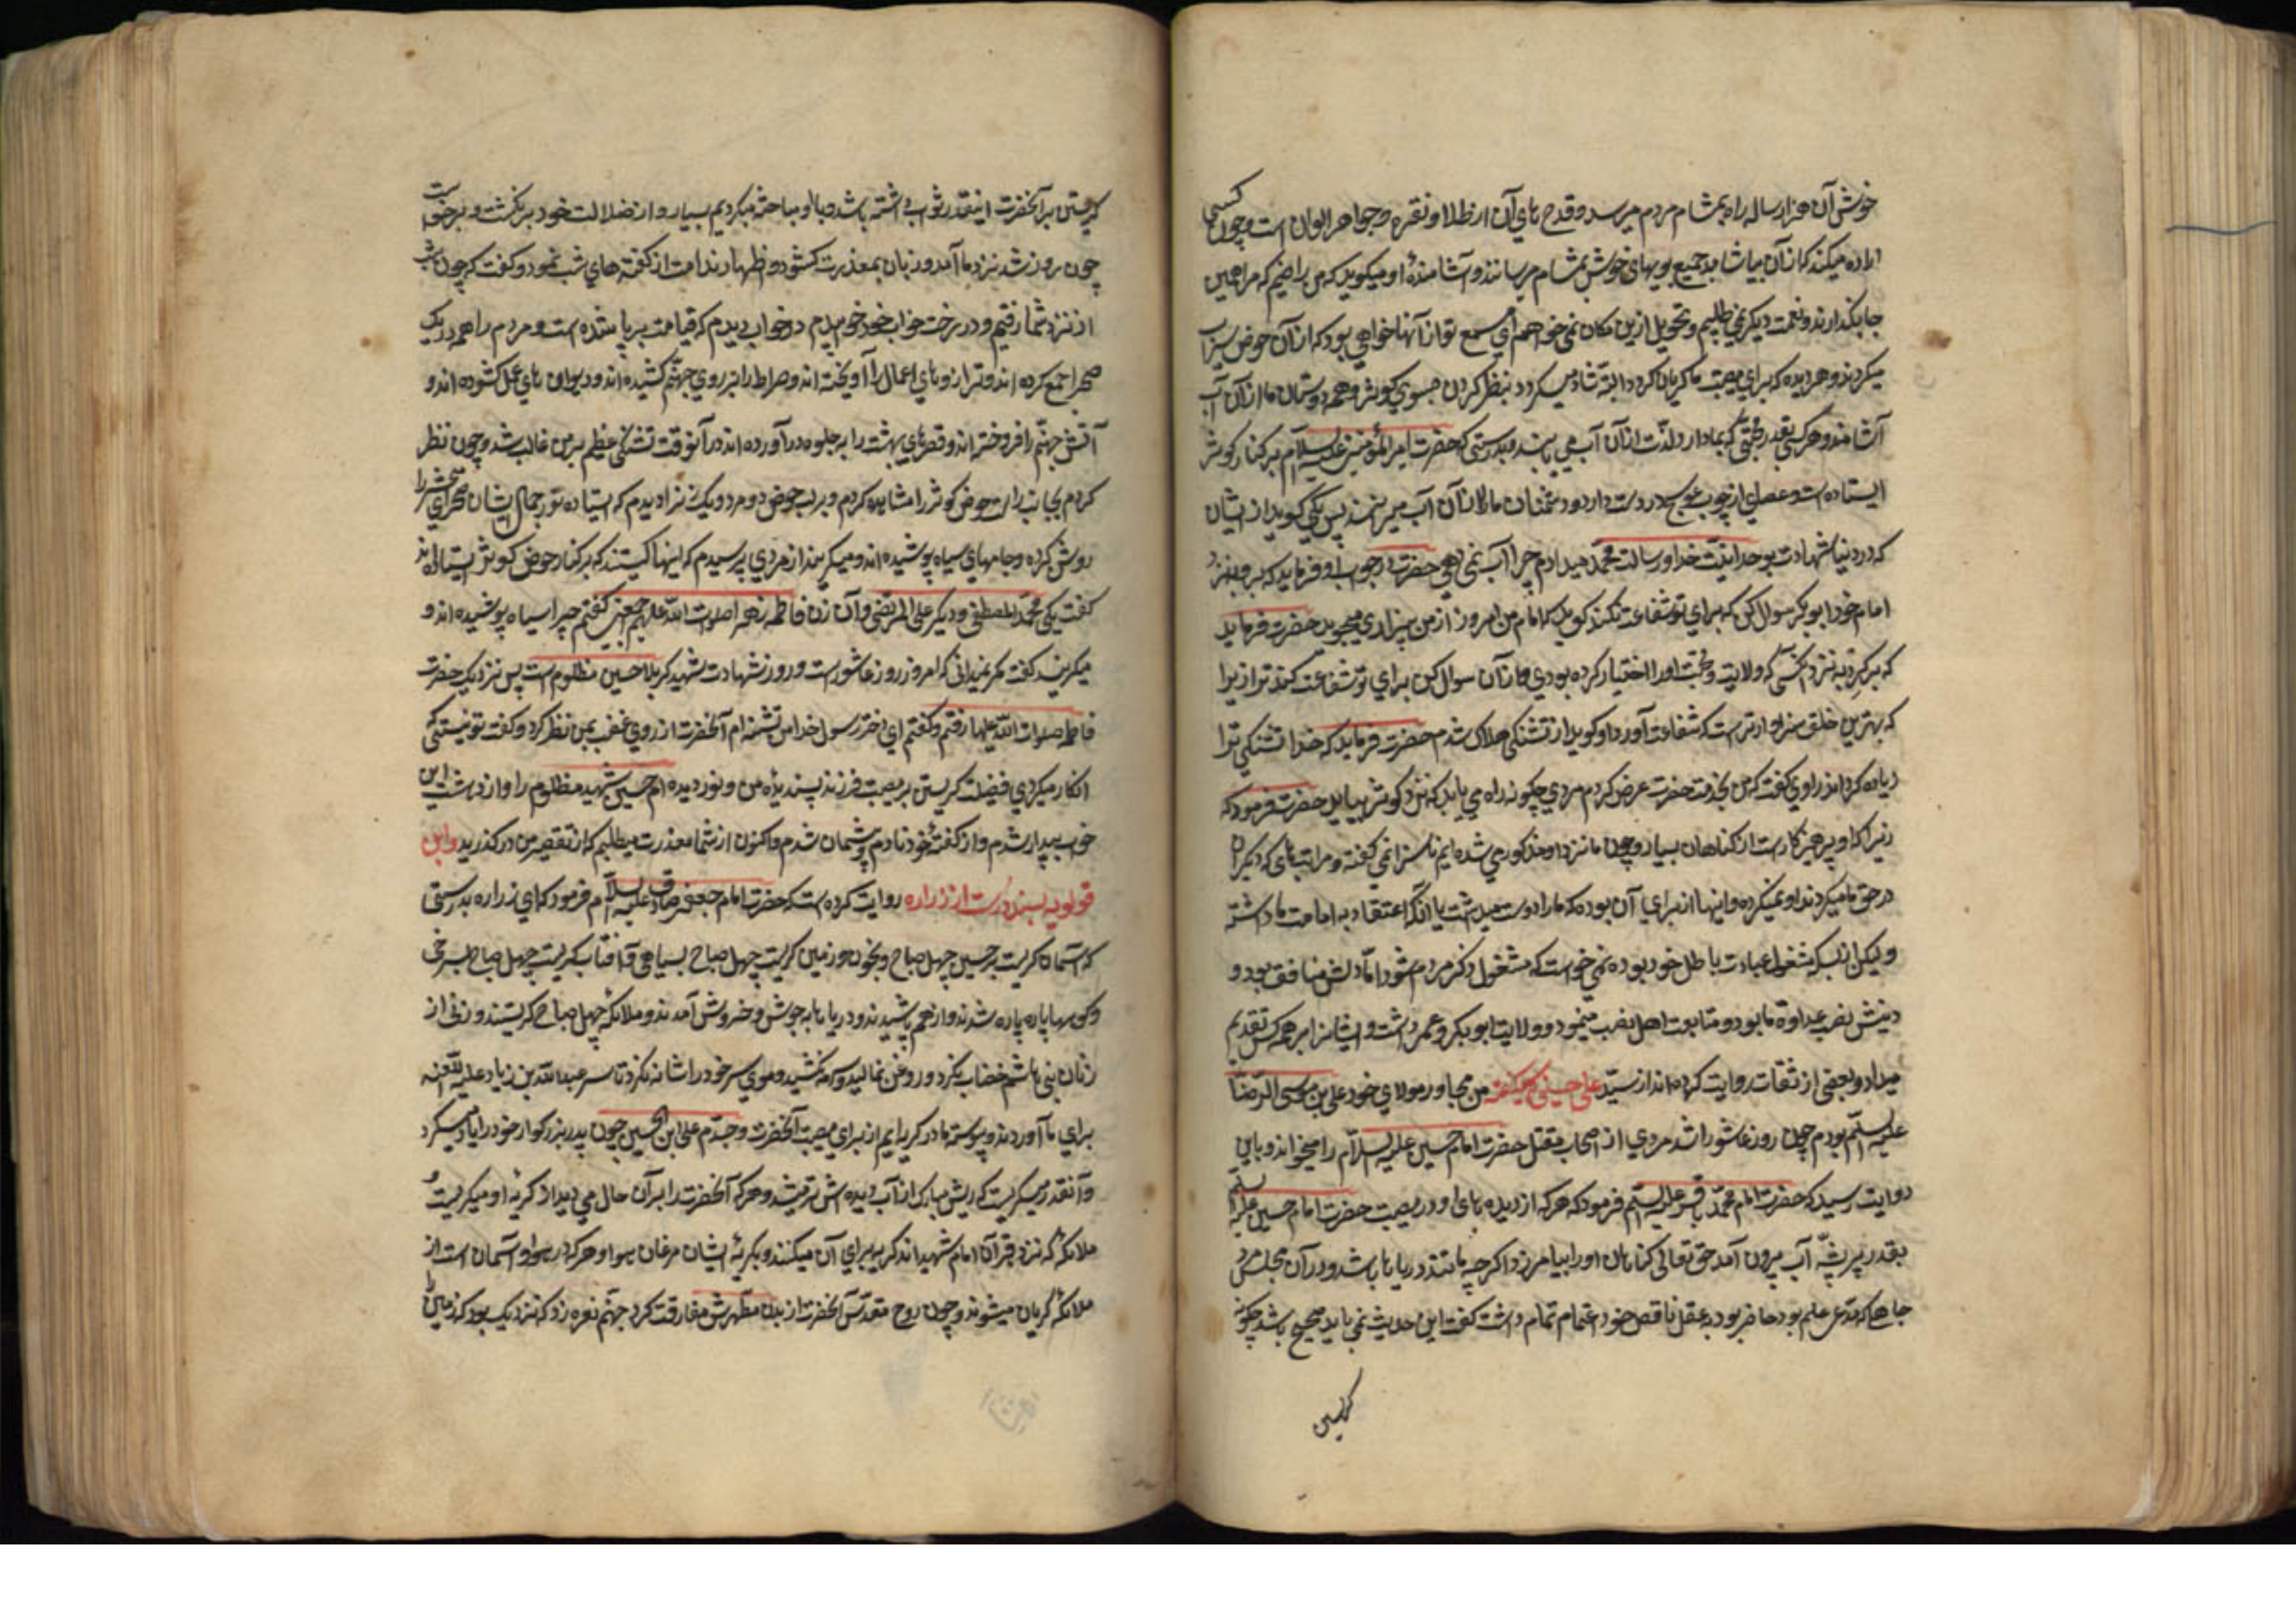 خوش آن هزار ساله راه بمشام مردم میرسد و قدح های آن از طلا و نقره و جواهر الوان است و چون کسی
اراده میکند که از آن بیاشامد جمیع بویهای خوش بمشام میرسانند و آشامندهٔ او میکوید که من راضیم که مرا همین
جا بگذارند و نعمت دیگر نمی طلبم و تحویل ازین مکان نمی خواهم ای مسمع تو از آنها خواهی بود که از آن حوض سیراب
میکردند و هر دیده که برای مصیبت ما کریان کردد البته شاد میکردد بنظر کردن بسوی کوثر و همه دوستان ما از آن آب
آشامند و هر کسی بقدر محبتی که بما دارد لذت از آن آب می یابند و بدرستی که حضرت امیر المؤمنین علیه السلام بر کنار کوثر
ایستاده است و عصایی از چوب عوسج در دست دارد و دشمنان ما را از آن آب میراند پس یکی کوید از ایشان
که در دنیا شهادت بوحدانیت خدا و رسالت محمد میدادم چرا آب نمی دهی حضرت در جواب او فرماید که برو بنزد
امام خود ابو بکر سوال کن که برای تو شفاعت کند کوید که امام من امروز از من بیزاری میجوید حضرت فرماید
که برگرد به نزد آنکسی که ولایت و محبت او را اختیار کرده بودی و از آن سوال کن برای تو شفاعت کند ترا زیرا
که بهترین خلق سزاوارترست که شفاعت آورد او کوید از تشنکی هلاک شدم حضرت فرماید که خدا تشنکی ترا
زیاده کرداند راوی کفت که من بخدمت حضرت عرض کردم مردی چکونه راه می یابد که نزد کوثر بیاید حضرت فرمود که
زیرا که او پرهیز کارست از کناهان بسیار و چون ما نزد او مذکور می شده ایم ناسزا نمی کفته و مراتبهای که دیکران
در حق ما میکردند او نمیکرده و اینها از برای آن بوده که ما را دوست میداشت یا آنکه اعتقاد به امامت ما داشته
و لیکن از بسکه مشغول عبادت باطل خود بوده نمی خواست که مشغول ذکر مردم شود اما دلش منافق بود و
دینش نصب عداوة ما بود و متابعت اهل نصب مینمود و ولایت ابو بکر و عمر داشت و ایشانرا بر همه کس تقدیم
میداد و بعضی از ثقات روایت کرده اند از سید علی حسینی که میکفت من مجاور مولای خود علی بن موسی الرضا
علیه السلام بودم چون روز عاشورا شد مردی از اصحاب مقتل حضرت امام حسین علیه السلام را میخواند و باین
روایت رسید که حضرت امام محمد باقر علیه السلام فرمود که هر که از دیده های او در مصیبت حضرت امام حسین علیه السلام
بقدر پر پشّه آب بیرون آمد حق تعالی کناهان او را بیامرزد اگر چه مانند دریا باشد و در آن مجلس مرد
جاهلی که مدعی علم بود حاضر بود به عقل ناقص خود اعتماد تمام داشت کفت این حدیث نمی باید صحیح باشد چکونه
کریستن
کریستن بر آنحضرت اینقدر ثواب داشته باشد ما با او مباحثه میکردیم بسیار و از ضلالت خود برنکشت و برخواست
چون روز شد نزد ما آمد و زبان بمعذرت کشود و اظهار ندامت از کفته های شب نمود و کفت که چون شب
از نزد شما رفتم و در رخت خواب خود خوابیدم در خواب دیدم که قیامت برپا شده است و مردم را همه در یک
صحرا جمع کرده اند و ترازوهای اعمال را آویخته اند و صراط را بر روی جهنّم کشیده اند و دیوان های عمل کشوده اند و
آتش جهنم را افروخته اند و قصرهای بهشت را به جلوه در آورده اند در آنوقت تشنکی عظیم بر من غالب شد و چون نظر
کردم بجانب راست حوض کوثر را مشاهده کردم و بر لب حوض دو مرد و یک زن را دیدم که ایستاده نور جمال ایشان صحرای محشر را
روشن کرده و جامهای سیاه پوشیده اند و میکریند از مردی پرسیدم که اینها کیستند که بر کنار حوض کوثر ایستاده اند
کفت یکی محمد المصطفی و دیکر علی المرتضی و آن زن فاطمه زهرا صلوات الله علیهم اجمعین کفتم چرا سیاه پوشیده اند و
میکریند کفت مکر نمیدانی که امروز روز عاشور است و روز شهادت شهید کربلا حسین مظلوم است پس نزدیک حضرت
فاطمه صلوات الله علیها رفتم و کفتم ای دختر رسول خدا من تشنه ام آنحضرت از روی غضب بمن نظر کرد و کفت تو نیستی که
انکار میکردی فضیلت کریستن بر مصیبت فرزند پسندیدهٔ من و نور دیده ام حسین شهید مظلوم را و از دهشت این
خواب بیدار شدم و از کفتهٔ خود نادم و پشیمان شدم و اکنون از شما معذرت میطلبم که از تقصیر من در کذرید و ابن
قولویه بسند درست از زراره روایت کرده است که حضرت امام جعفر صادق علیه السلام فرمود که ای زراره بدرستی
که آسمان کریست بر حسین چهل صباح و بخون و زمین کریست چهل صباح بسیاهی و آفتاب کریست چهل صباح بسرخی
و کوهها پاره پاره شدند و از هم پاشیدند و دریاها به جوش و خروش آمدند و ملائکه چهل صباح کریستند و زنی از
زنان بنی هاشم خضاب نکرد و روغن نمالید و سرمه نکشید و موی سر خود را شانه نکرد تا سر عبد الله بن زیاد علیه اللعنه
برای ما آوردند و پیوسته ما در کریه ایم از برای مصیبت آنحضرت و جدّم علی ابن الحسین چون پدر بزرکوار خود را یاد میکرد
و آنقدر میکریست که ریش مبارک از آب دیده اش تر میشد و هر که آنحضرت را بر آن حال می دید از کریهٔ او میکریست و
ملائکهٔ که نزد قبر آن امام شهید اند کریه برای آن میکنند و بکریهٔ ایشان مرغان هوا و هر که در هوا و آسمان است از
ملائکه کریان میشوند و چون روح مقدّس آنحضرت از بدن مطهرش مفارقت کرد جهنّم نعره زد که نزدیک بود که زمین